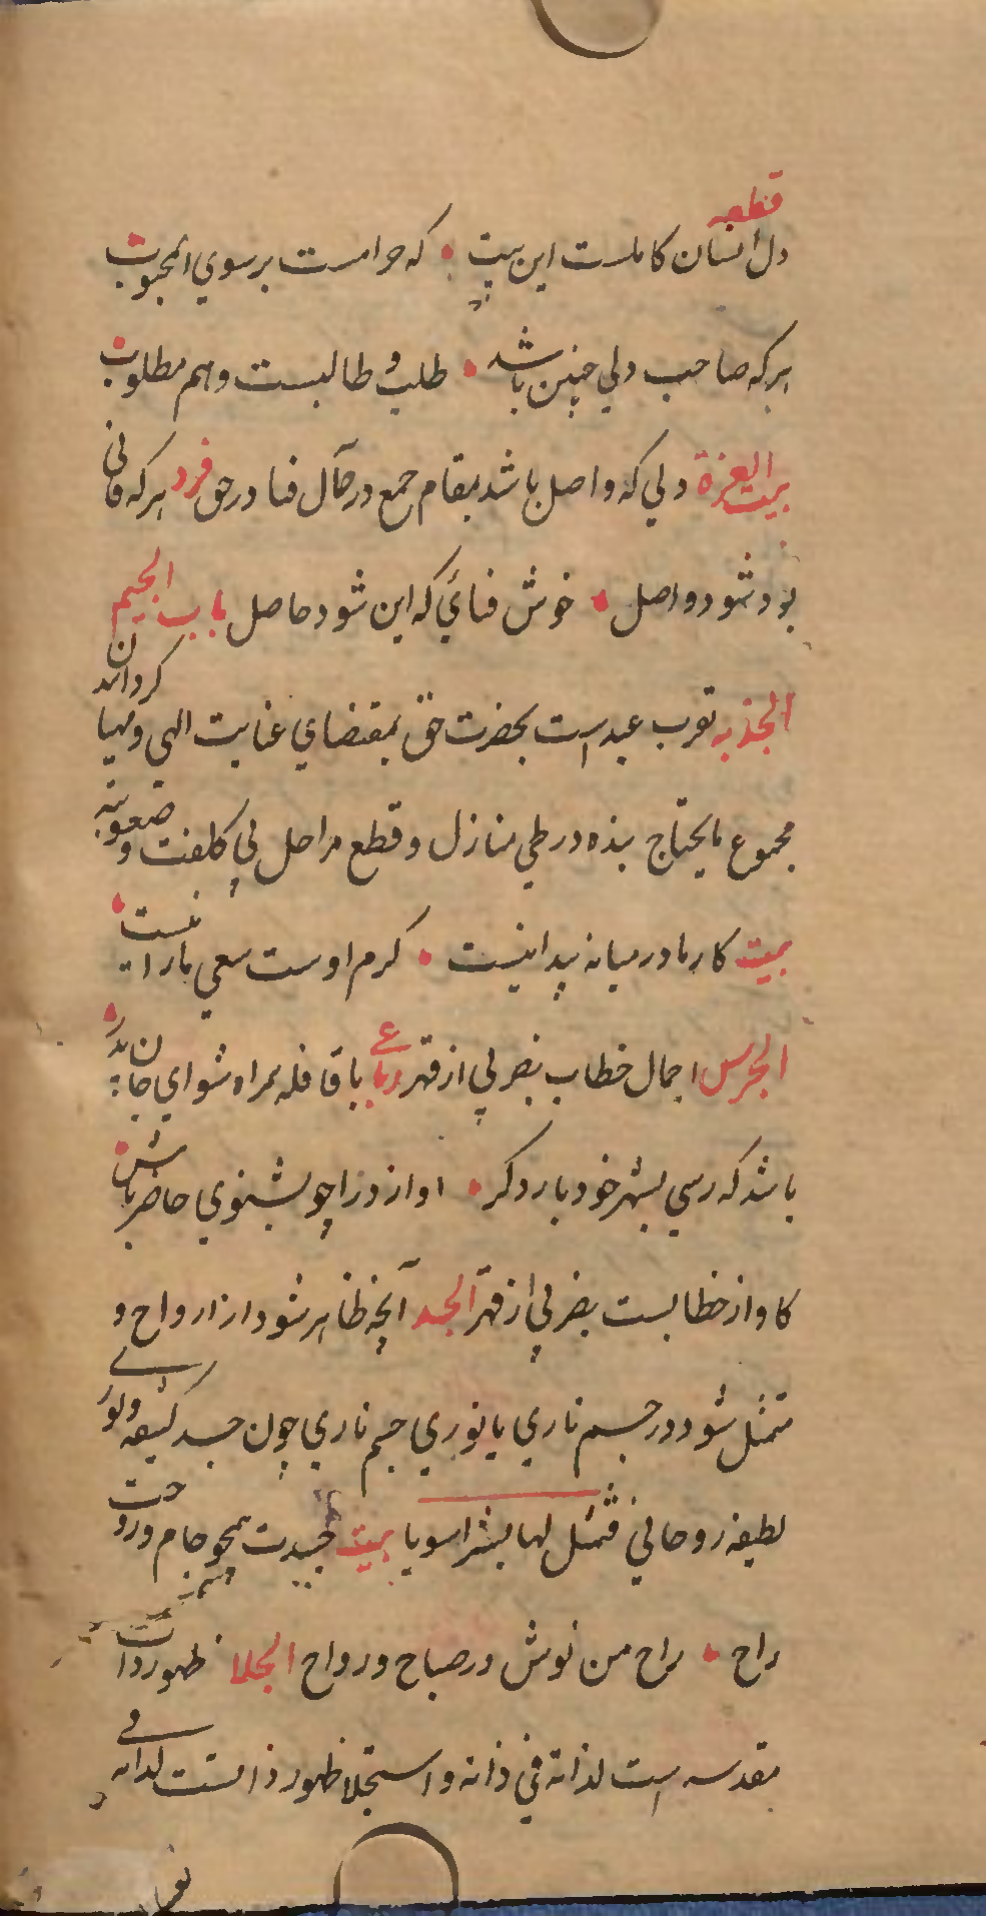 قطعه
دل انسان کاملست این بیت • که حرامست بر سوی المحبوب
هر که صاحب دلی چنین باشد • طلب و طالبست و هم مطلوب
بیت العزة دلی که واصل باشد بمقام جمع در حال فنا در حق فرد هر که فانی
بود شود واصل • خوش فنائی که این شود حاصل باب الجیم
الجذبه تقرب عبد است بحضرت حق بمقتضای عنایت الهی و مهیا کردانیدن
مجموع مایحتاج بنده در طی منازل و قطع مراحل بی کلفت و صعوبة
بیت کار ما در میانه پیدا نیست • کرم اوست سعی ما را نیست
الجرس اجمال خطاب بضربی از قهر رباعی با قافله همراه شو ای جان پدر
باشد که رسی بشهر خود بار دکر • اواز درا چو بشنوی حاضر باش
کاواز خطابست بضربی از قهر الجسد آنچه ظاهر شود از ارواح و
متمثل شود در جسم ناری یا نوری جسم ناری چون جسد کثیفه و نوری
لطیفه روحانی فتمثل لها بشرا سویا بیت جسدت همچو جام و روحت
راح • راح من نوش در صباح و رواح الجلا ظهور ذات
مقدسه است لذاته فی ذاته و استجلا ظهور ذاتست لذاته فی